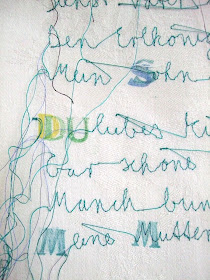 Den Erlkönig
Mein Sohn
DU liebes Ki
Gar schöne
Manch bun
Meine Mutter